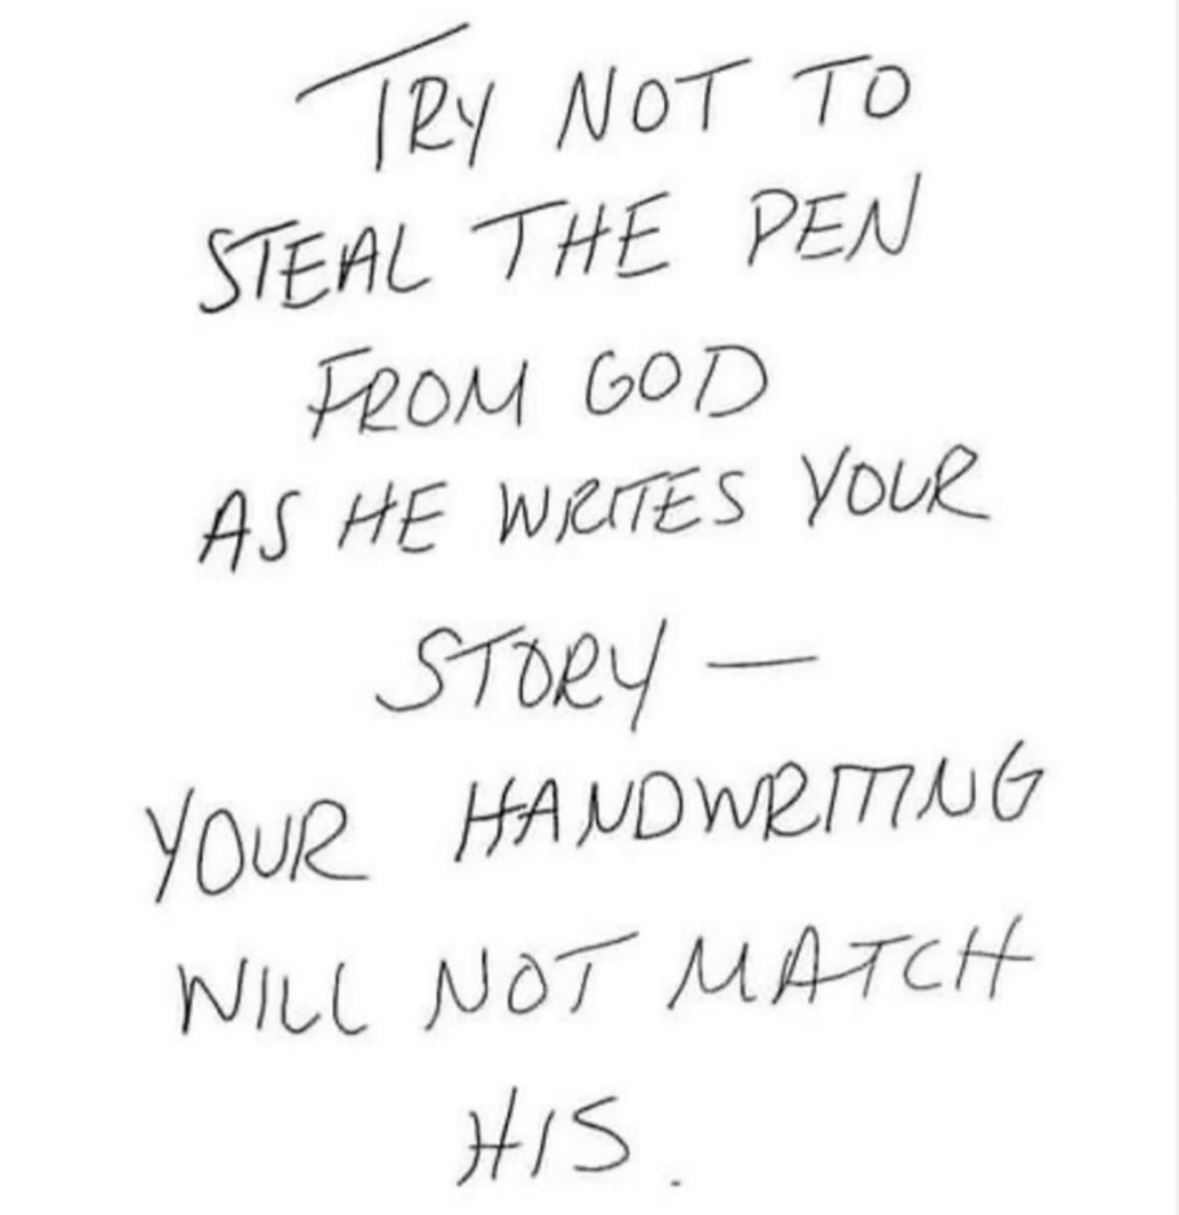 TRY NOT TO
STEAL THE PEN
FROM GOD
AS HE WRITES YOUR
STORY —
YOUR HANDWRITING
WILL NOT MATCH
HIS.